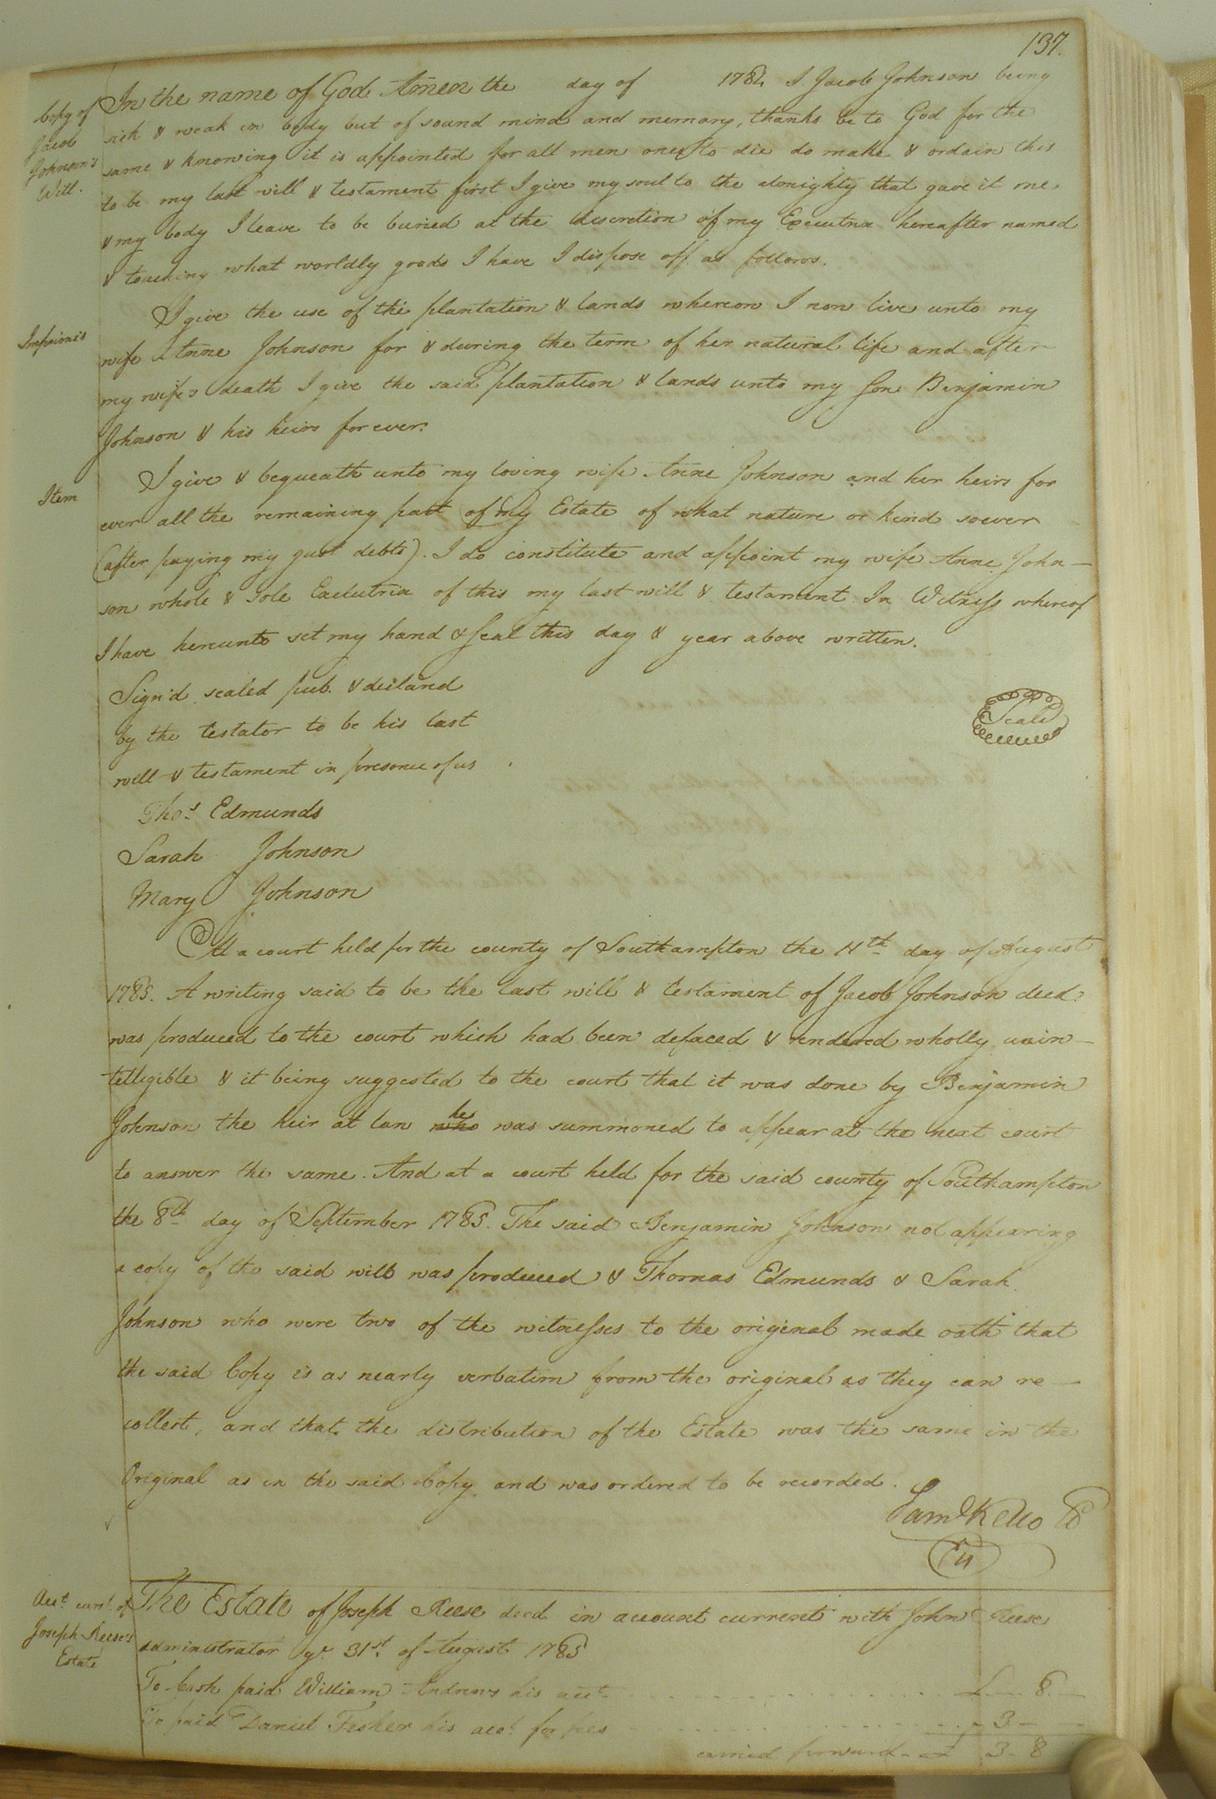 137.
Copy of
Jacob
Johnson's
Will.
In the name of God Amen the day of 1784 I Jacob Johnson being
sick & weak in body but of sound mind and memory, thanks be to God for the
same & knowing it is appointed for all men once to die do make & ordain this
to be my last will & testament first I give my soul to the almighty that gave it me
& my body I leave to be buried at the discretion of my Executrix hereafter named
& touching what worldly goods I have I dispose off as follows.
Impsimis
I give the use of the plantation & lands whereon I now live unto my
wife Anne Johnson for & during the term of her natural life and after
my wife's death I give the said plantation & lands unto my Son Benjamin
Johnson & his heirs forever.
Item
I give & bequeath unto my loving wife Anne Johnson and her heirs for
ever all the remaining part of my Estate of what nature or kind soever
(after paying my just debts). I do constitute and appoint my wife Anne John-
son whole & Sole Executrix of this my last will & testament In Witness whereof
I have hereunto set my hand & Seal this day & year above written.
Sign'd sealed pub. & declared
by the testator to be his last
will & testament in presence of us
Seale
Thos. Edmunds
Sarah Johnson
Mary Johnson
At a court held for the county of Southampton the 11th day of August
1785. A writing said to be the last will & testament of Jacob Johnson decd.
was produced to the court which had been defaced & rendered wholly unin-
telligible & it being suggested to the court that it was done by Benjamin
Johnson the heir at law he was summoned to appear at the next court
to answer the same. And at a court held for the said county of Southampton
the 8th day of September 1785. The said Benjamin Johnson not appearing
a copy of the said will was produced & Thomas Edmunds & Sarah
Johnson who were two of the witnesses to the original made oath that
the said Copy is as nearly verbatim from the original as they can re-
collect, and that the distribution of the Estate was the same in the
Original as in the said Copy and was ordered to be recorded.
Saml Kello
Acct. curt. of
Joseph Reese's
Estate
The Estate of Joseph Reese decd in account current with John Reese
administrator ye 31st of August 1785
To Cash paid William Andrews his acct. £ 8
To paid Daniel Fisher his acct. for fees 3
carried forward £ 3 8